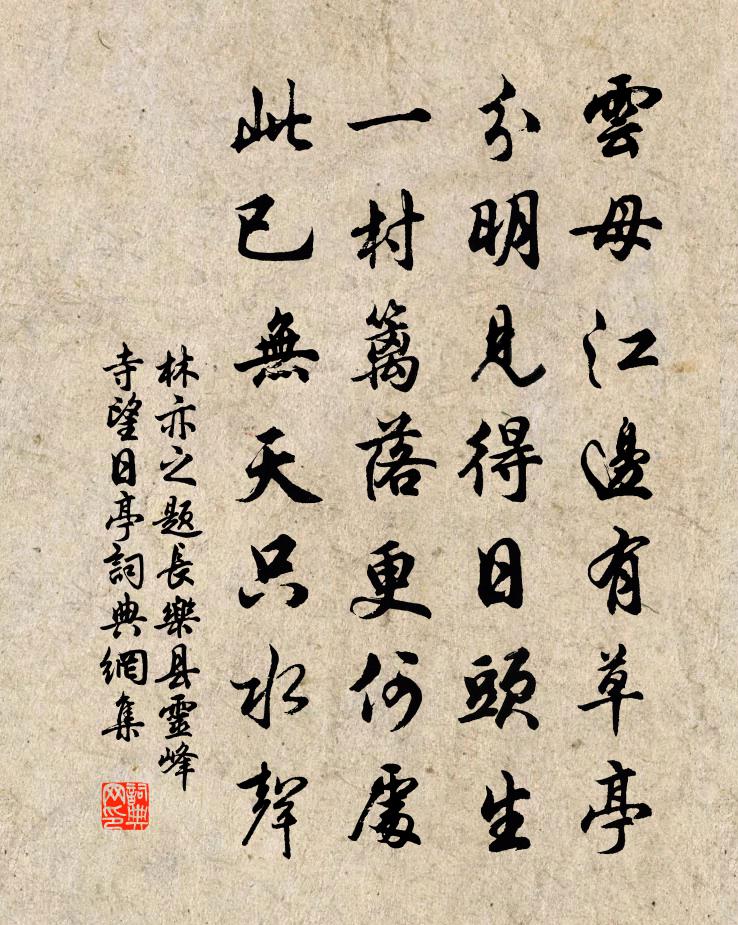 雲母江邊有草亭
分明見得日頭生
一村籬落更何處
此已無天只水聲
林亦之題長樂县靈峰
寺望日亭詞典網集
詞典
网印